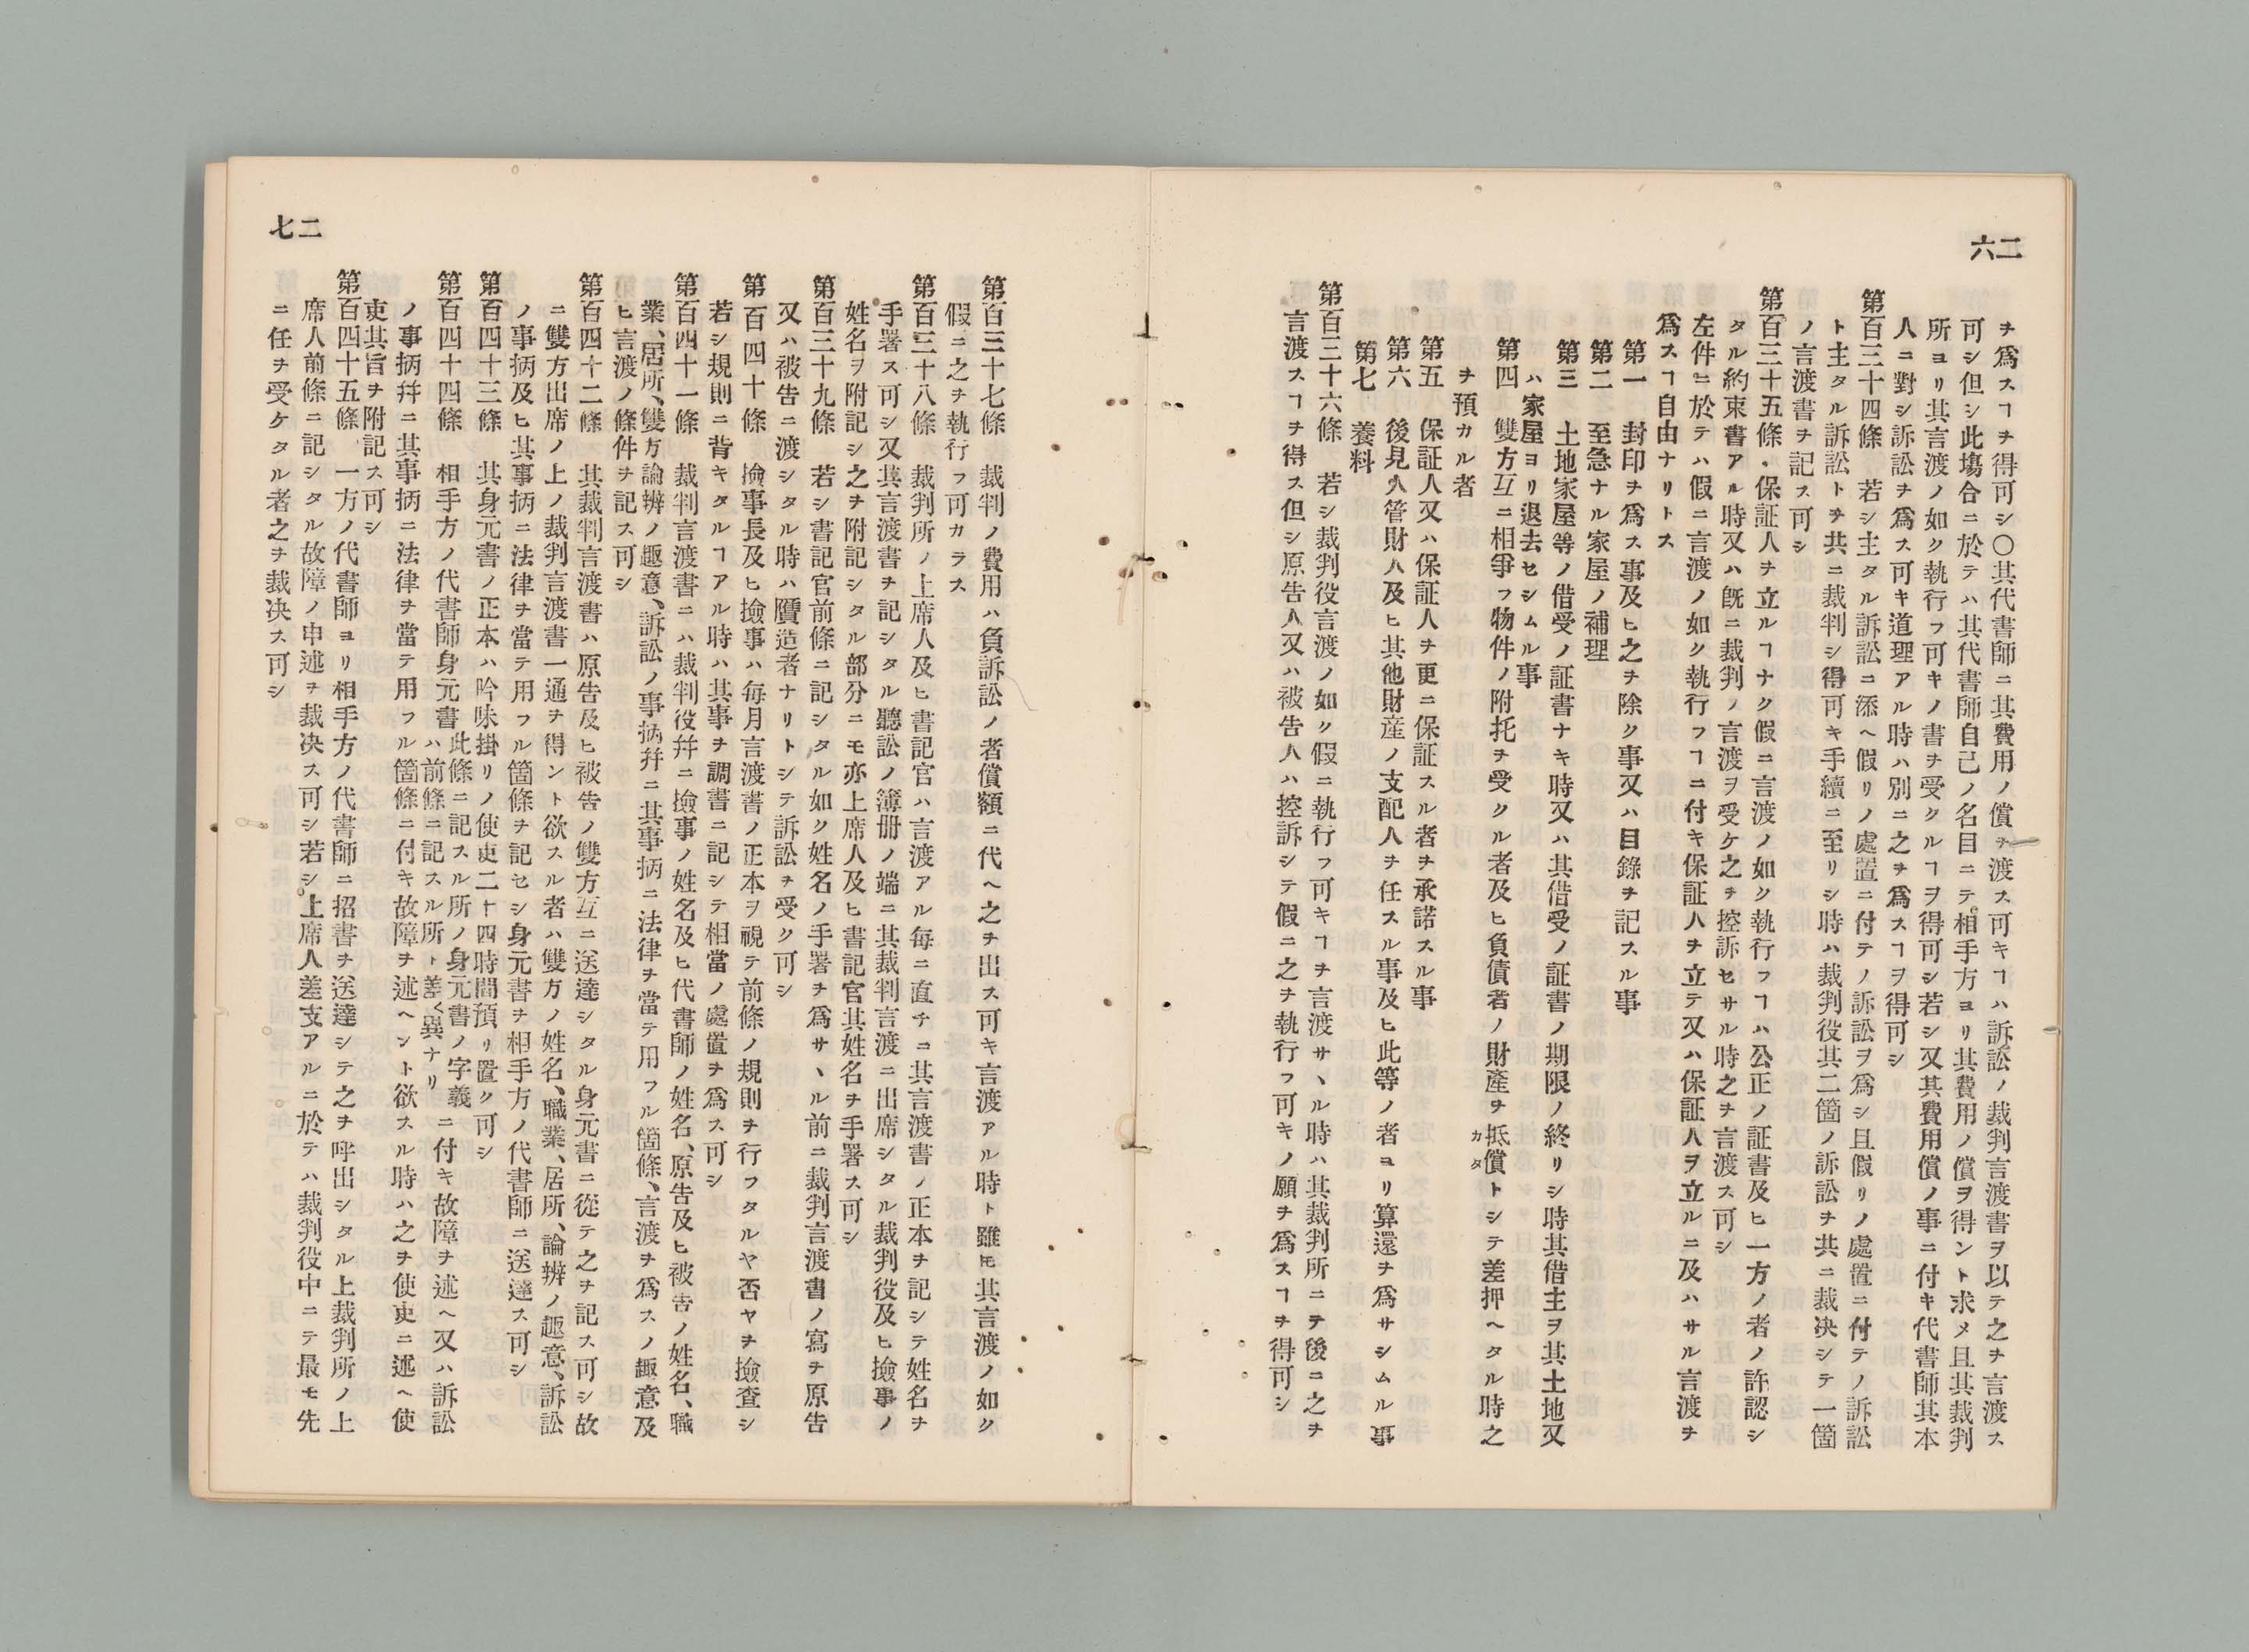 二六
ヲ爲スヿヲ得可シ〇其代書師ニ其費用ノ償ヲ渡ス可キヿハ訴訟ノ裁判言渡書ヲ以テ之ヲ言渡ス
可シ但シ此塲合ニ於テハ其代書師自己ノ名目ニテ相手方ヨリ其費用ノ償ヲ得ント求メ且其裁判
所ヨリ其言渡ノ如ク執行フ可キノ書ヲ受クルヿヲ得可シ若シ又其費用償ノ事ニ付キ代書師其本
人ニ對シ訴訟ヲ爲ス可キ道理アル時ハ別ニ之ヲ爲スヿヲ得可シ
第百三十四條　若シ主タル訴訟ニ添ヘ假リノ處置ニ付テノ訴訟ヲ爲シ且假リノ處置ニ付テノ訴訟
ト主タル訴訟トヲ共ニ裁判シ得可キ手續ニ至リシ時ハ裁判役其二箇ノ訴訟ヲ共ニ裁决シテ一箇
ノ言渡書ヲ記ス可シ
第百三十五條　保証人ヲ立ルヿナク假ニ言渡ノ如ク執行フヿハ公正ノ証書及ヒ一方ノ者ノ許認シ
タル約束書アル時又ハ既ニ裁判ノ言渡ヲ受ケ之ヲ控訴セサル時之ヲ言渡ス可シ
左件ニ於テハ假ニ言渡ノ如ク執行フヿニ付キ保証人ヲ立テ又ハ保証人ヲ立ルニ及ハサル言渡ヲ
爲スヿ自由ナリトス
第一　封印ヲ爲ス事及ヒ之ヲ除ク事又ハ目錄ヲ記スル事
第二　至急ナル家屋ノ補理
第三　土地家屋等ノ借受ノ証書ナキ時又ハ其借受ノ証書ノ期限ノ終リシ時其借主ヲ其土地又
ハ家屋ヨリ退去セシムル事
第四　雙方互ニ相爭フ物件ノ附托ヲ受クル者及ヒ負債者ノ財產ヲ抵償カタトシテ差押ヘタル時之
ヲ預カル者
第五　保証人又ハ保証人ヲ更ニ保証スル者ヲ承諾スル事
第六　後見人管財人及ヒ其他財産ノ支配人ヲ任スル事及ヒ此等ノ者ヨリ算還ヲ爲サシムル事
第七　養料
第百三十六條　若シ裁判役言渡ノ如ク假ニ執行フ可キヿヲ言渡サヽル時ハ其裁判所ニテ後ニ之ヲ
言渡スヿヲ得ス但シ原告人又ハ被告人ハ控訴シテ假ニ之ヲ執行フ可キノ願ヲ爲スヿヲ得可シ
二七
第百三十七條　裁判ノ費用ハ負訴訟ノ者償額ニ代ヘ之ヲ出ス可キ言渡アル時ト雖𪜈其言渡ノ如ク
假ニ之ヲ執行フ可カラス
第百三十八條　裁判所ノ上席人及ヒ書記官ハ言渡アル每ニ直チニ其言渡書ノ正本ヲ記シテ姓名ヲ
手署ス可シ又其言渡書ヲ記シタル聽訟ノ簿册ノ端ニ其裁判言渡ニ出席シタル裁判役及ヒ撿事ノ
姓名ヲ附記シ之ヲ附記シタル部分ニモ亦上席人及ヒ書記官其姓名ヲ手署ス可シ
第百三十九條　若シ書記官前條ニ記シタル如ク姓名ノ手署ヲ爲サヽル前ニ裁判言渡書ノ寫ヲ原告
又ハ被告ニ渡シタル時ハ贋造者ナリトシテ訴訟ヲ受ク可シ
第百四十條　撿事長及ヒ撿事ハ每月言渡書ノ正本ヲ視テ前條ノ規則ヲ行フタルヤ否ヤヲ撿查シ
若シ規則ニ背キタルヿアル時ハ其事ヲ調書ニ記シテ相當ノ處置ヲ爲ス可シ
第百四十一條　裁判言渡書ニハ裁判役幷ニ撿事ノ姓名及ヒ代書師ノ姓名、原告及ヒ被告ノ姓名、職
業、居所、雙方論辨ノ趣意、訴訟ノ事抦幷ニ其事抦ニ法律ヲ當テ用フル箇條、言渡ヲ爲スノ趣意及
ヒ言渡ノ條件ヲ記ス可シ
第百四十二條　其裁判言渡書ハ原告及ヒ被告ノ雙方互ニ送達シタル身元書ニ從テ之ヲ記ス可シ故
ニ雙方出席ノ上ノ裁判言渡書一通ヲ得ント欲スル者ハ雙方ノ姓名、職業、居所、論辨ノ趣意、訴訟
ノ事抦及ヒ其事抦ニ法律ヲ當テ用フル箇條ヲ記セシ身元書ヲ相手方ノ代書師ニ送達ス可シ
第百四十三條　其身元書ノ正本ハ吟味掛リノ使吏二十四時間預リ置ク可シ
第百四十四條　相手方ノ代書師身元書此條ニ記スル所ノ身元書ノ字義ハ前條ニ記スル所ト差く異ナリニ付キ故障ヲ述ヘ又ハ訴訟
ノ事抦幷ニ其事抦ニ法律ヲ當テ用フル箇條ニ付キ故障ヲ述ヘント欲スル時ハ之ヲ使吏ニ述ヘ使
吏其旨ヲ附記ス可シ
第百四十五條　一方ノ代書師ヨリ相手方ノ代書師ニ招書ヲ送達シテ之ヲ呼出シタル上裁判所ノ上
席人前條ニ記シタル故障ノ申述ヲ裁决ス可シ若シ上席人差支アルニ於テハ裁判役中ニテ最モ先
ニ任ヲ受ケタル者之ヲ裁决ス可シ